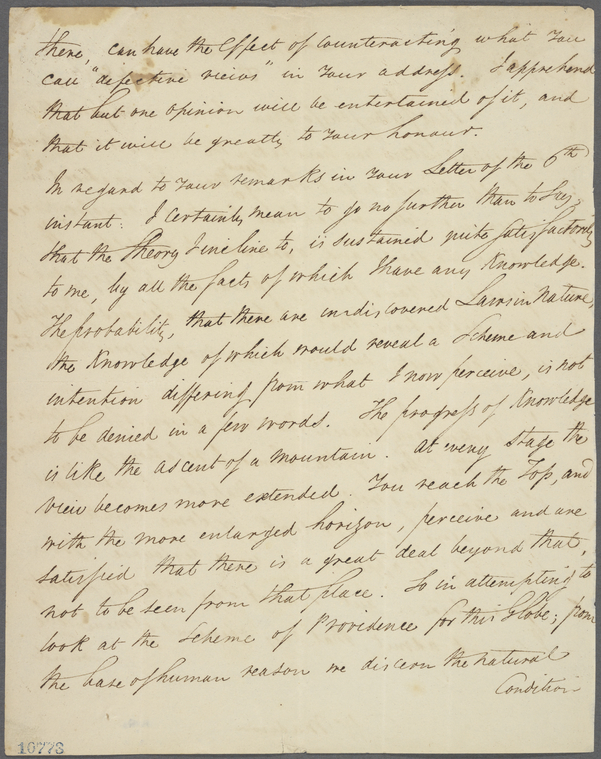 there, can have the effect of counteracting what you
call "defective views" in your address. I apprehend
that but one opinion will be entertained of it, and
that it will be greatly to your honour.
In regard to your remarks in your Letter of the 6th
instant: I certainly mean to go no further than to say,
that the Theory I incline to, is sustained quite satisfactorily
to me, by all the facts of which I have any Knowledge.
The probability, that there are undiscovered Laws in Nature,
the Knowledge of which would reveal a Scheme and
intention differing from what I now perceive, is not
to be denied in a few words. The progress of Knowledge
is like the ascent of a mountain. At every Stage the
view becomes more extended. You reach the Top, and
with the more enlarged horizon, perceive and are
satisfied that there is a great deal beyond that,
not to be seen from that place. So in attempting to
look at the Scheme of Providence for this Globe; from
the base of human reason we discern the natural
Condition
10773